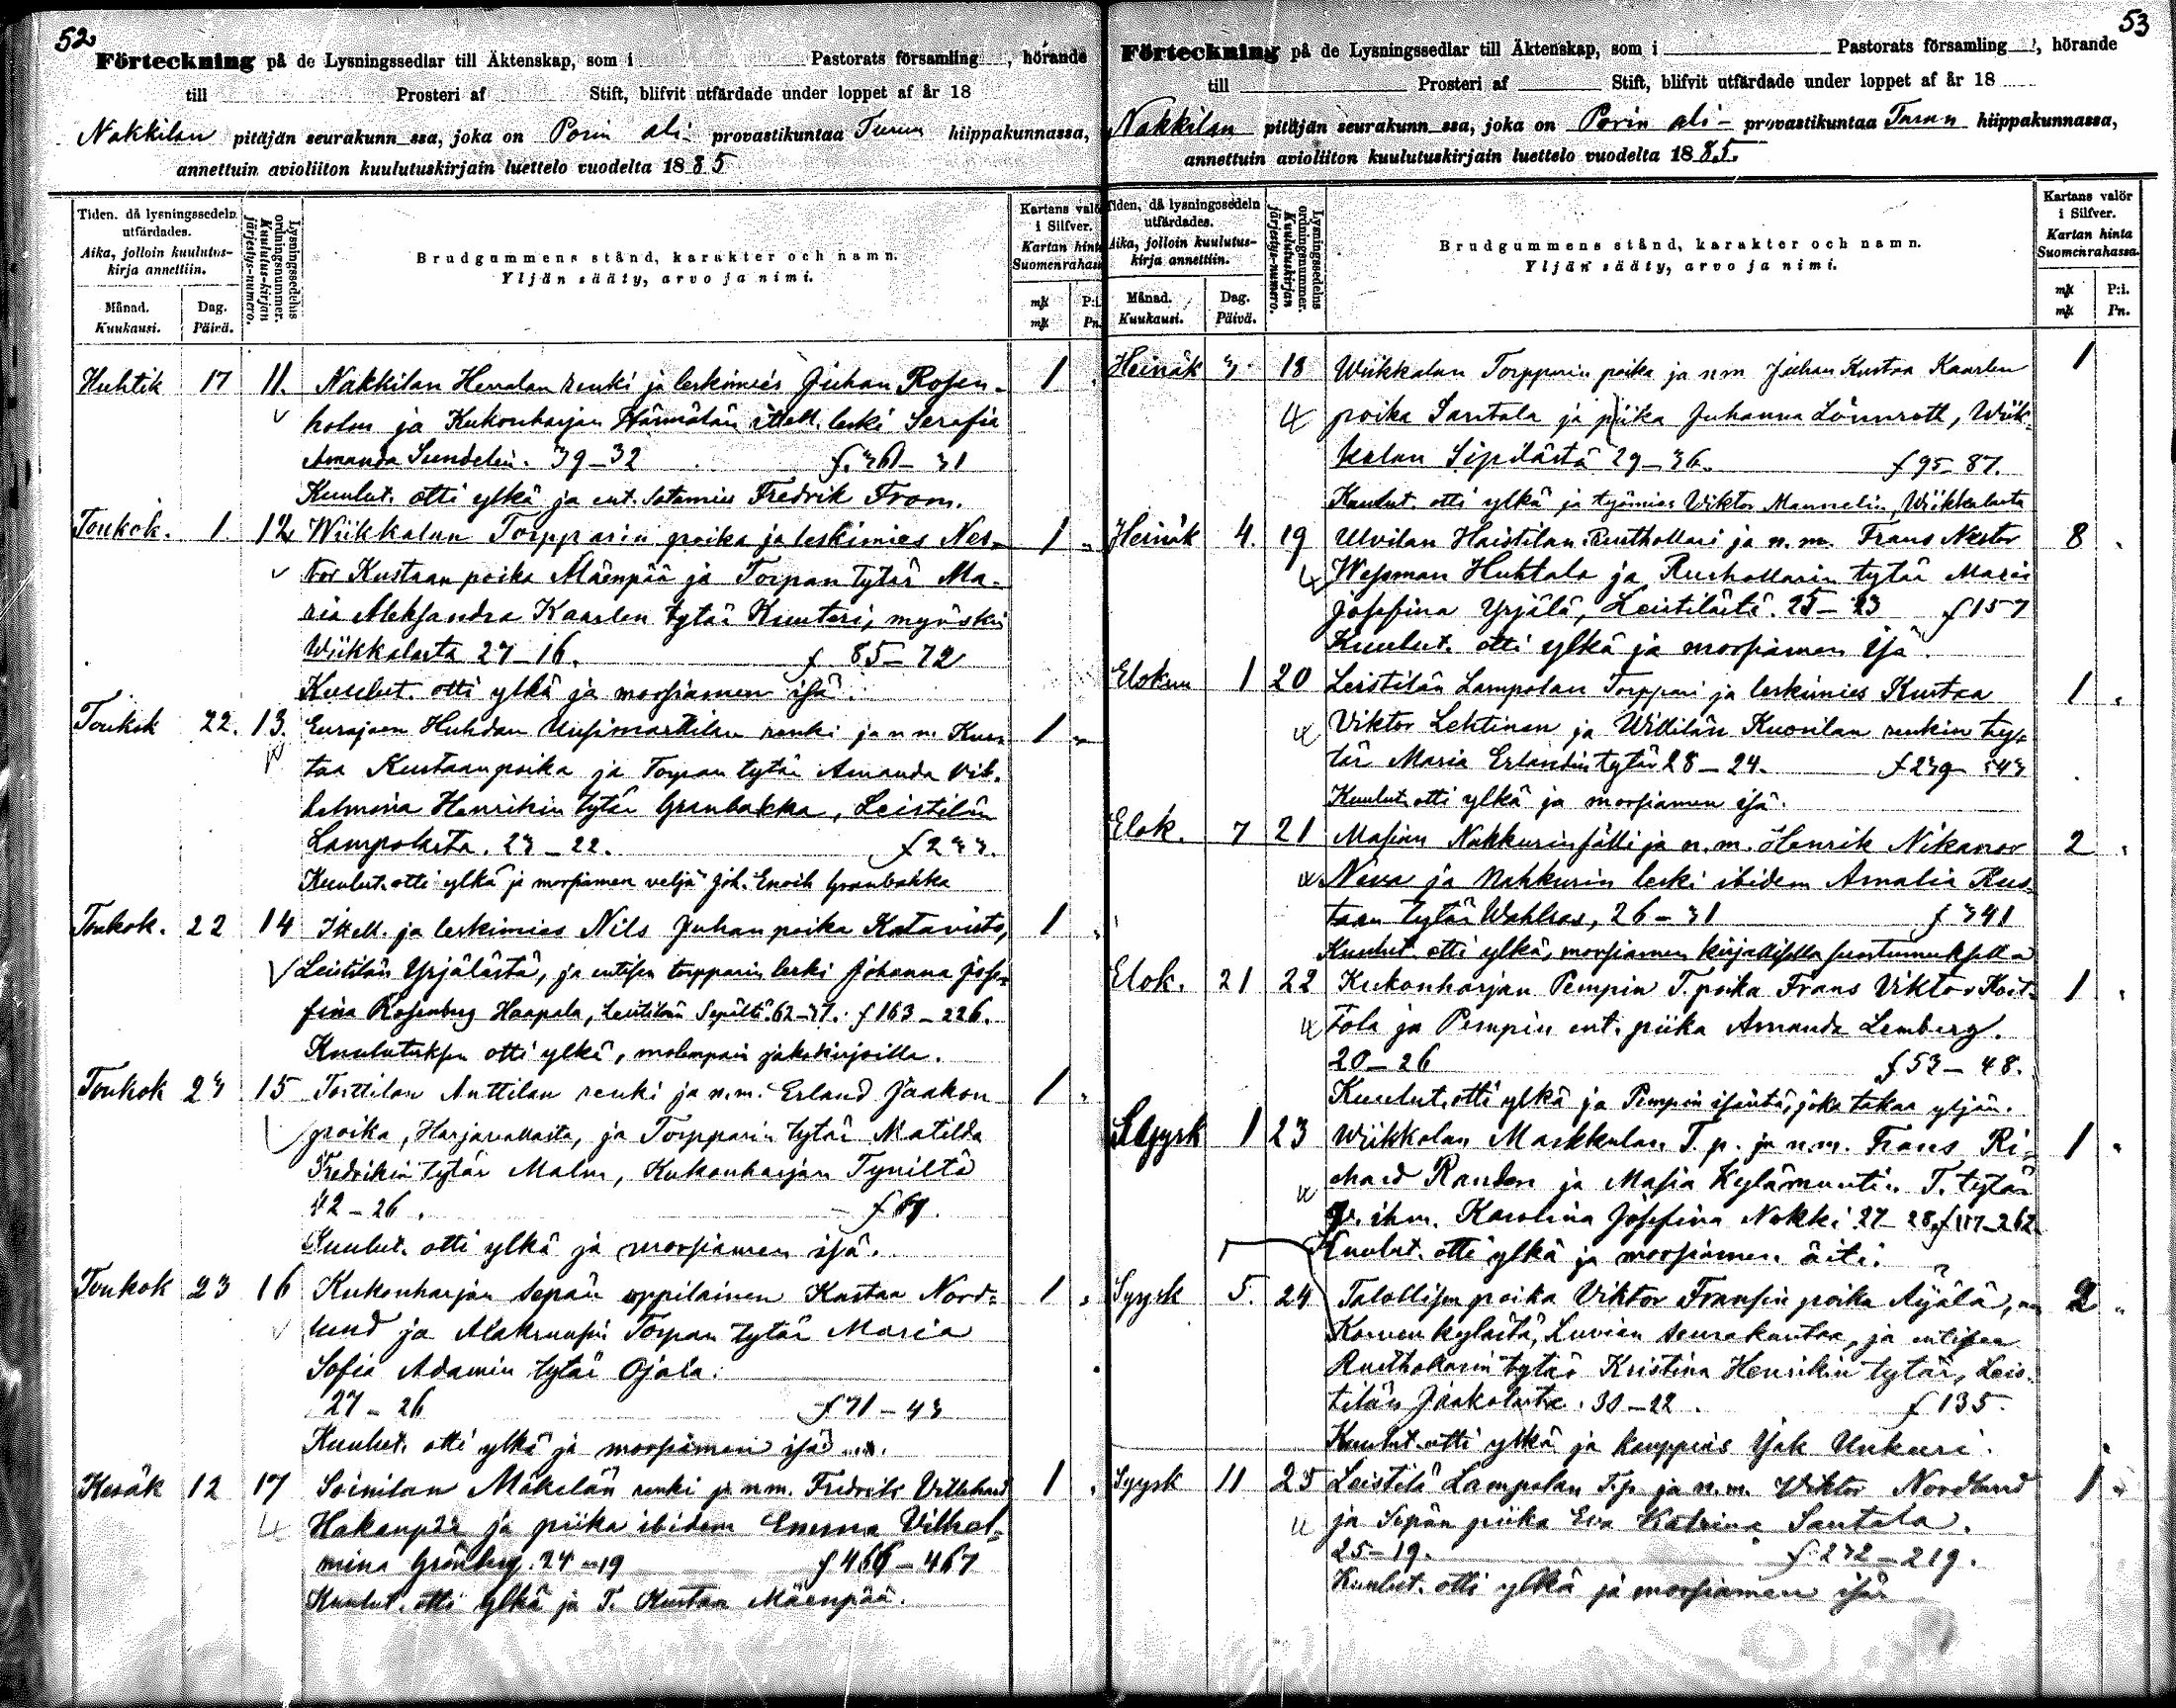 52
Förteckning på de Lysningssedlar till Äktenskap, som i Pastorats församling , hörande
till Prosteri af Stift, blifvit utfärdade under loppet af år 18
Nakkilan pitäjän seurakunn ssa, joka on Porin ali provastikuntaa Turun hiippakunnassa,
annettuin avioliiton kuulutuskirjain luettelo vuodelta 1885
Tiden, då lysningssedeln utfärdades.
Aika, jolloin kuulutus-kirja annettiin.
Månad. Kuukausi.
Dag. Päivä.
Lysningssedelns ordningsnummer.
Kuulutus-kirjan järjestys-numero.
Brudgummens stånd, karakter och namn.
Yljän sääty, arvo ja nimi.
Kartans valör i Silfver.
Kartan hinta Suomenrahassa
mk P:i.
mk Pn.
Huhtik 17 11. Nakkilan Herralan renki ja leskimies Juhan Rosen- 1
holm ja Kukonharjan Härmälän ittell. leski Serafia
Amanda Sundelin. 39-32 f. 361-31
Kuulut. otti ylkä ja ent. sotamies Fredrik From.
Toukok. 1. 12 Wiikkalan Torpparin poika ja leskimies Nes- 1
tor Kustaan poika Mäenpää ja Torpan tytär Ma-
ria Aleksandra Kaarlen tytär Kuuteri, myöskin
Wiikkalasta 27-16. f 85-72
Kuulut. otti ylkä ja morsiamen isä.
Toukok 22. 13. Eurajoen Huhdan Uusimarttilan renki ja n m. Kus- 1
taa Kustaanpoika ja Torpan tytär Amanda Vil-
helmina Henrikin tytär Granbakka, Leistilän
Lampolasta. 23-22. f 233.
Kuulut. otti ylkä ja morsiamen veljä Joh. Enoch Granbakka
Toukok. 22 14 Itell. ja leskimies Nils Juhan poika Katavisto, 1
Leistilän Yrjälästä, ja entisen torpparin leski Johanna Jose-
fina Rosenberg Haapala, Leistilän Sepältä. 62-37. f 163-226.
Kuulutuksen otti ylkä, molempain jakokirjoilla.
Toukok 23 15 Torttilan Anttilan renki ja n.m. Erland Jaakon 1
poika, Harjavallasta, ja Torpparin tytär Matilda
Fredrikin tytär Malm, Kukonharjan Tyniltä
42-26. f 67.
Kuulut. otti ylkä ja morsiamen isä.
Toukok 23 16 Kukonharjan Sepän oppilainen Kustaa Nord- 1
lund ja Alakruusin Torpan tytär Maria
Sofia Adamin tytär Ojala.
27-26 f 71-43
Kuulut. otti ylkä ja morsiamen isä
Kesäk 12 17 Soinilan Mäkelän renki ja n m. Fredrik Villehard 1
Hakanpää ja piika ibidem Emma Vilhel-
mina Grönberg. 24-19 f 466-467
Kuulut. otti ylkä ja T. Kustaa Mäenpää.
53
Förteckning på de Lysningssedlar till Äktenskap, som i Pastorats församling , hörande
till Prosteri af Stift, blifvit utfärdade under loppet af år 18
Nakkilan pitäjän seurakunn ssa, joka on Porin ali- provastikuntaa Turun hiippakunnassa,
annettuin avioliiton kuulutuskirjain luettelo vuodelta 1885.
Tiden, då lysningssedeln utfärdades.
Aika, jolloin kuulutus-kirja annettiin.
Månad. Kuukausi.
Dag. Päivä.
Lysningssedelns ordningsnummer.
Kuulutuskirjan järjestys-numero.
Brudgummens stånd, karakter och namn.
Yljän sääty, arvo ja nimi.
Kartans valör i Silfver.
Kartan hinta Suomenrahassa.
mk P:i.
mk Pn.
Heinäk 3. 18 Wiikkalan Torpparin poika ja n m Juhan Kustaa Kaarlen 1
poika Santala ja piika Juhanna Lönnrott, Wiik-
kalan Sipilästä 29-36. f 95-87.
Kuulut. otti ylkä ja työmies Wiktor Mannelin, Wiikkalasta
Heinäk 4. 19 Ulvilan Haistilan Rusthollari ja n. m. Frans Nestor 8
Wessman Huhtala ja Rusthollarin tytär Maria
Josefina Yrjälä, Leistilästä. 25-23 f 157
Kuulut. otti ylkä ja morsiamen isä.
Elokuu 1 20 Leistilän Lampolan Torppari ja leskimies Kustaa 1
Viktor Lehtinen ja Willilän Kuorilan renkin ty-
tär Maria Erlandin tytär 28-24. f 239-343
Kuulut. otti ylkä ja morsiamen isä.
Elok. 7 21 Masian Nahkurinsälli ja n. m. Henrik Nikanor 2
Neva ja Nahkurin leski ibidem Amalia Kus-
taan tytär Wahlros, 26-31 f 341
Kuulut. otti ylkä, morsiamen kirjallisella suostumuksella
Elok. 21 22 Kukonharjan Pempin T. poika Frans Viktor Koit- 1
tola ja Pempin ent. piika Amanda Lemberg.
20-26 f 53-48.
Kuulut. otti ylkä ja Pempin isäntä, joka takaa yljän.
Syysk 1 23 Wiikkalan Markkulan T. p. ja n.m. Frans Ri- 1
chard Randen ja Masia Kylämuutin T. tytär
ihm. Karolina Josefina Nokki 27-28. f 117-262
Kuulut. otti ylkä ja morsiamen äiti.
Syysk 5. 24 Talollisen poika Viktor Fransin poika Äijälä, 2
Korven kylästä, Luvian seurakuntaa, ja entisen
Rusthollarin tytär Kristina Henrikin tytär, Leis-
tilän Jaakolasta. 30-22. f 135.
Kuulut. otti ylkä ja kauppias Isak Unkuri.
Syysk 11 25 Leistilä Lampolan T.p. ja n.m. Viktor Nordlund 1
ja Sepän piika Eva Katrina Santala.
25-19. f 232-219.
Kuulut. otti ylkä ja morsiamen isä